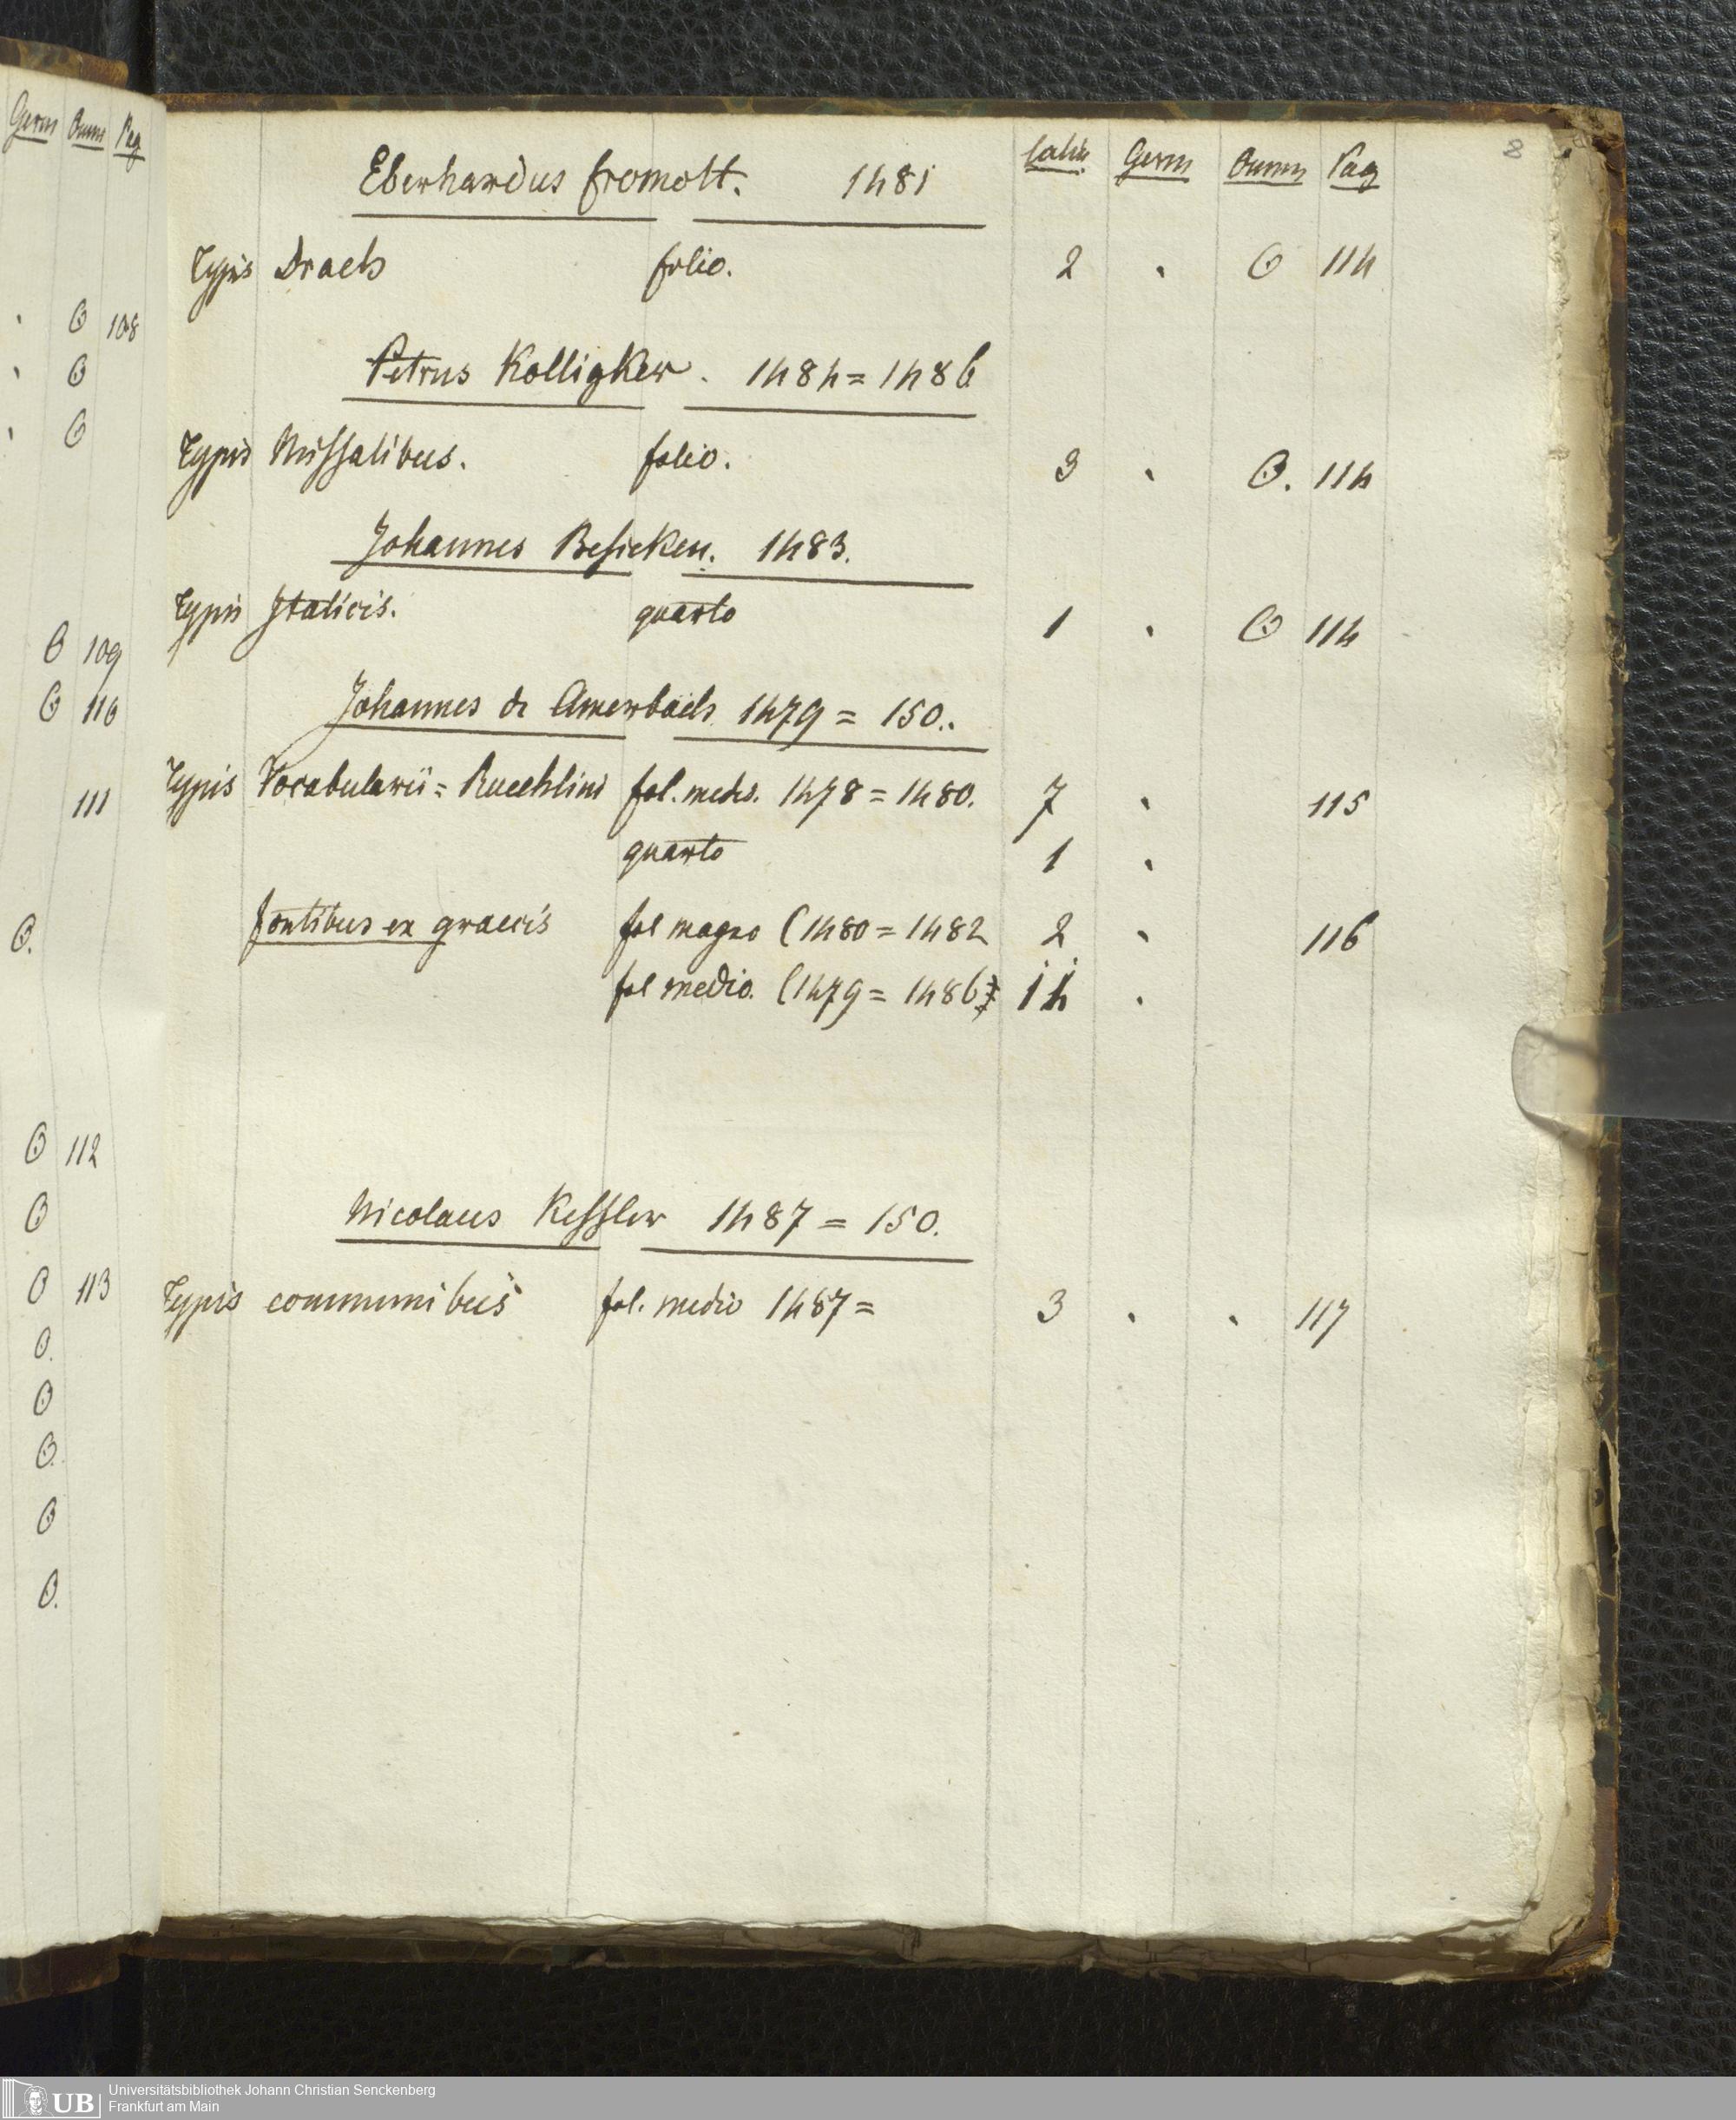 Germ Omn Pag
108
109
110
111
112
113
8
Eberhardus fromolt. 1481 Latin Germ Pag
Typis Drach folio. 2 114
Petrus Kolligker. 1484 = 1486
Typis Missalibus. folio. 3 114
Johannes Besicken. 1483.
Typis Italicis. quarto 1 114
Johannes de Amerbach 1479 = 150..
Typis Vocabularii = Ruechlini fol. med. 1478 = 1480. 7 115
quarto 1
fontibus ex graecis fol magno (1480 = 1482 2 116
fol medio. (1479 = 1486 14
Nicolaus Kessler 1487 = 150.
Typis communibus fol. medio 1487 = 3 117
UB Universitätsbibliothek Johann Christian Senckenberg
Frankfurt am Main